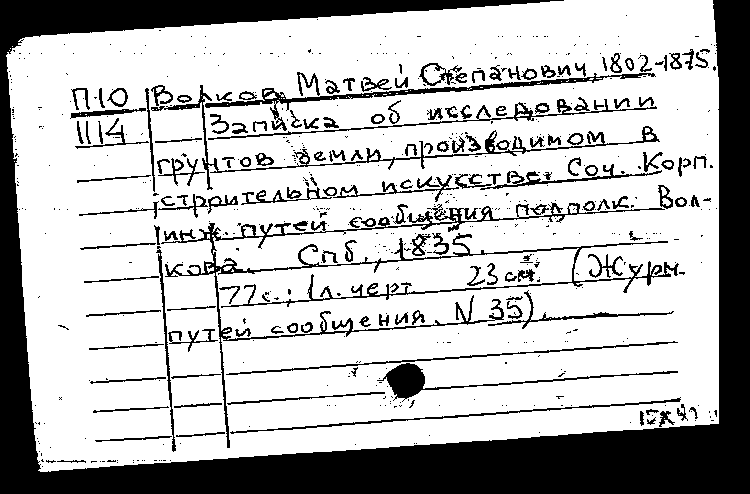 П10 Волков, Матвей Степанович, 1802-1875.
1114 Записка об исследовании
грунтов земли, производимом в
строительном искусстве. Соч. Корп.
инж. путей сообщения подполк. Вол-
кова. Спб., 1835.
77с.; 1л. черт. 23см. (Журн.
путей сообщения. N 35).